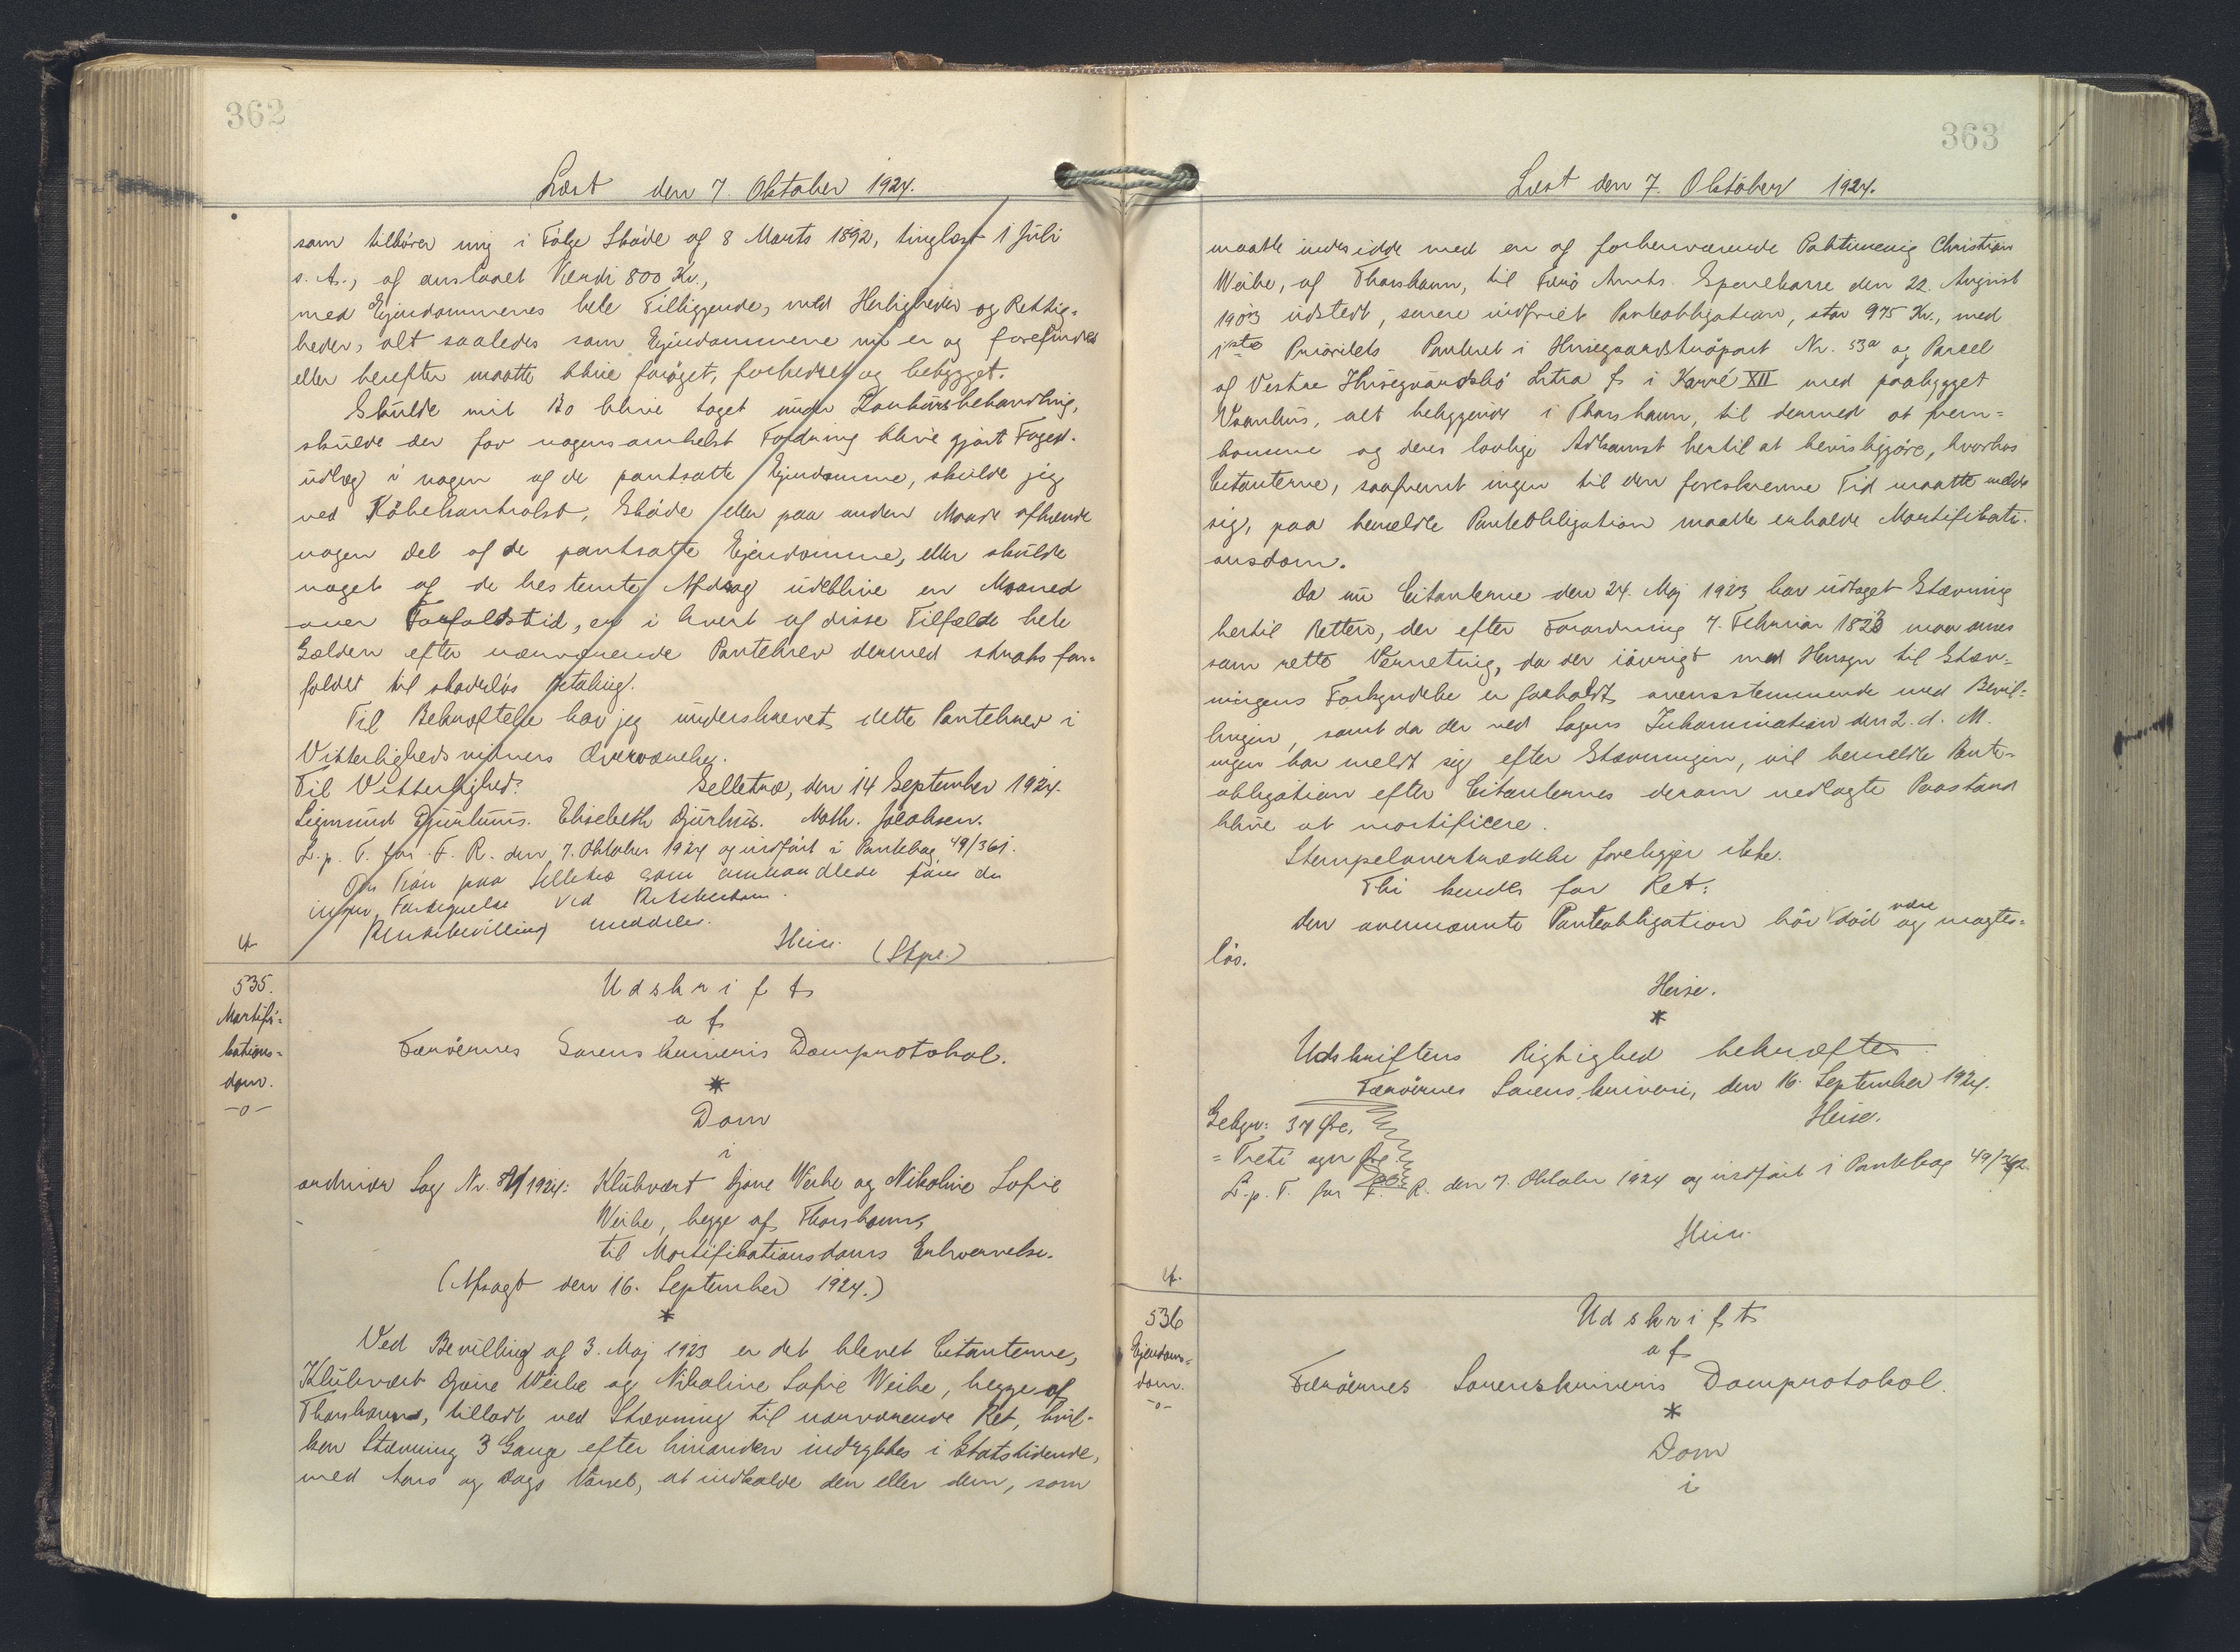 362
Læst den 7. Oktober 1924.
som tilhører mig i Følge Skøde af 8 Marts 1892, tinglæst 1 Juli
s. A., af anslaaet Værdi 800 Kr.,
med Ejendommenes hele Tilliggende, med Herligheder og Rettig=
heder, alt saaledes som Ejendommene nu er og forefindes
eller herefter maatte blive forøget, forbedret og bebygget.
Skulde mit Bo blive taget under Konkursbehandling,
skulde der for nogensomhelst Fordring blive gjort Foged-
udlæg i nogen af de pantsatte Ejendomme, skulde jeg
ved Købekontrakt, Skøde eller paa anden Maade afhænde
nogen Del af de pantsatte Ejendomme, eller skulde
noget af de bestemte Afdrag udeblive en Maaned
over Forfaldstid, er i hvert af disse Tilfælde hele
Gælden efter nærværende Pantebrev dermed straks for=
faldet til skadesløs Betaling.
Til Bekræftelse har jeg underskrevet dette Pantebrev i
Vitterlighedsvidners Overværelse.
Til Vitterlighed: Selletræ, den 14 September 1924.
Sigmund Djurhuus. Elisebeth Djurhus. Math. Jacobsen.
L. p. T. for F. R. den 7. Oktober 1924 og indført i Pantebog 49/361.
Om Trøn paa Selletræ som omhandlede føres der
ingen Fortegnelse ved Retskrederne.
Retsbevilling meddeles.
Heise. (Stpl.)
535.
Mortifi=
kations=
dom.
-o-
Udskrift
af
Færøernes Sorenskriveris Domprotokol.
*
Dom
i
ordinær Sag Nr. 1924: Klubvært Gjone Weihe og Nikoline Sofie
Weihe, begge af Thorshavn,
til Mortifikationsdoms Erhvervelse.
(Afsagt den 16. September 1924.)
*
Ved Bevilling af 3. Maj 1923 er det blevet Citanterne,
Klubvært Gjone Weihe og Nikoline Sofie Weihe, begge af
Thorshavn, tilladt ved Stævning til nærværende Ret, hvil-
ken Stævning 3 Gange efter hinanden indrykkes i Statstidende,
med Aars og Dags Varsel, at indkalde den eller dem, som
363
Læst den 7. Oktober 1924.
maatte indesidde med en af forhenværende Politimenig Christian
Weihe, af Thorshavn, til Færø Amts Sparekasse den 22. August
1903 udstedt, senere indfriet Panteobligation, stor 975 Kr., med
1ste Prioritets Panteret i Husegaardstrøpart Nr. 53a og Parcel
af Vestre Husegaardsbø Litra f i Karré XII med paabygget
Vaanhus, alt beliggende i Thorshavn, til dermed at frem=
komme og deres lovlige Adkomst hertil at bevisliggjøre, hvorhos
Citanterne, saafremt ingen til den foreskrevne Tid maatte melde
sig, paa bemeldte Panteobligation maatte erholde Mortifikati-
onsdom.
Da nu Citanterne den 24. Maj 1923 har udtaget Stævning
hertil Retten, der efter Forordning 7. Februar 1823 maa anses
som rette Værneting, da der iøvrigt med Hensyn til Stæv=
ningens Forkyndelse er forholdt overensstemmende med Bevil=
lingen, samt da der ved Sagens Inkamination den 2. d. M.
ingen har meldt sig efter Stævningen, vil bemeldte Pante=
obligation efter Citanternes derom nedlagte Paastand
blive at mortificere.
Stempelovertrædelse foreligger ikke.
Thi kendes for Ret:
den ovennævnte Panteobligation bør være død og magtes=
løs.
Heise.
*
Udskriftens Rigtighed bekræftes.
Færøernes Sorenskriveri, den 16. September 1924.
Gebyr: 37 Øre. Heise.
= Treti syv Øre
L. p. T. for F. R. den 7. Oktober 1924 og indført i Pantebog 49/362.
Heise.
536
Ejendoms=
dom.
-o-
Udskrift
af
Færøernes Sorenskriveris Domprotokol.
*
Dom
i